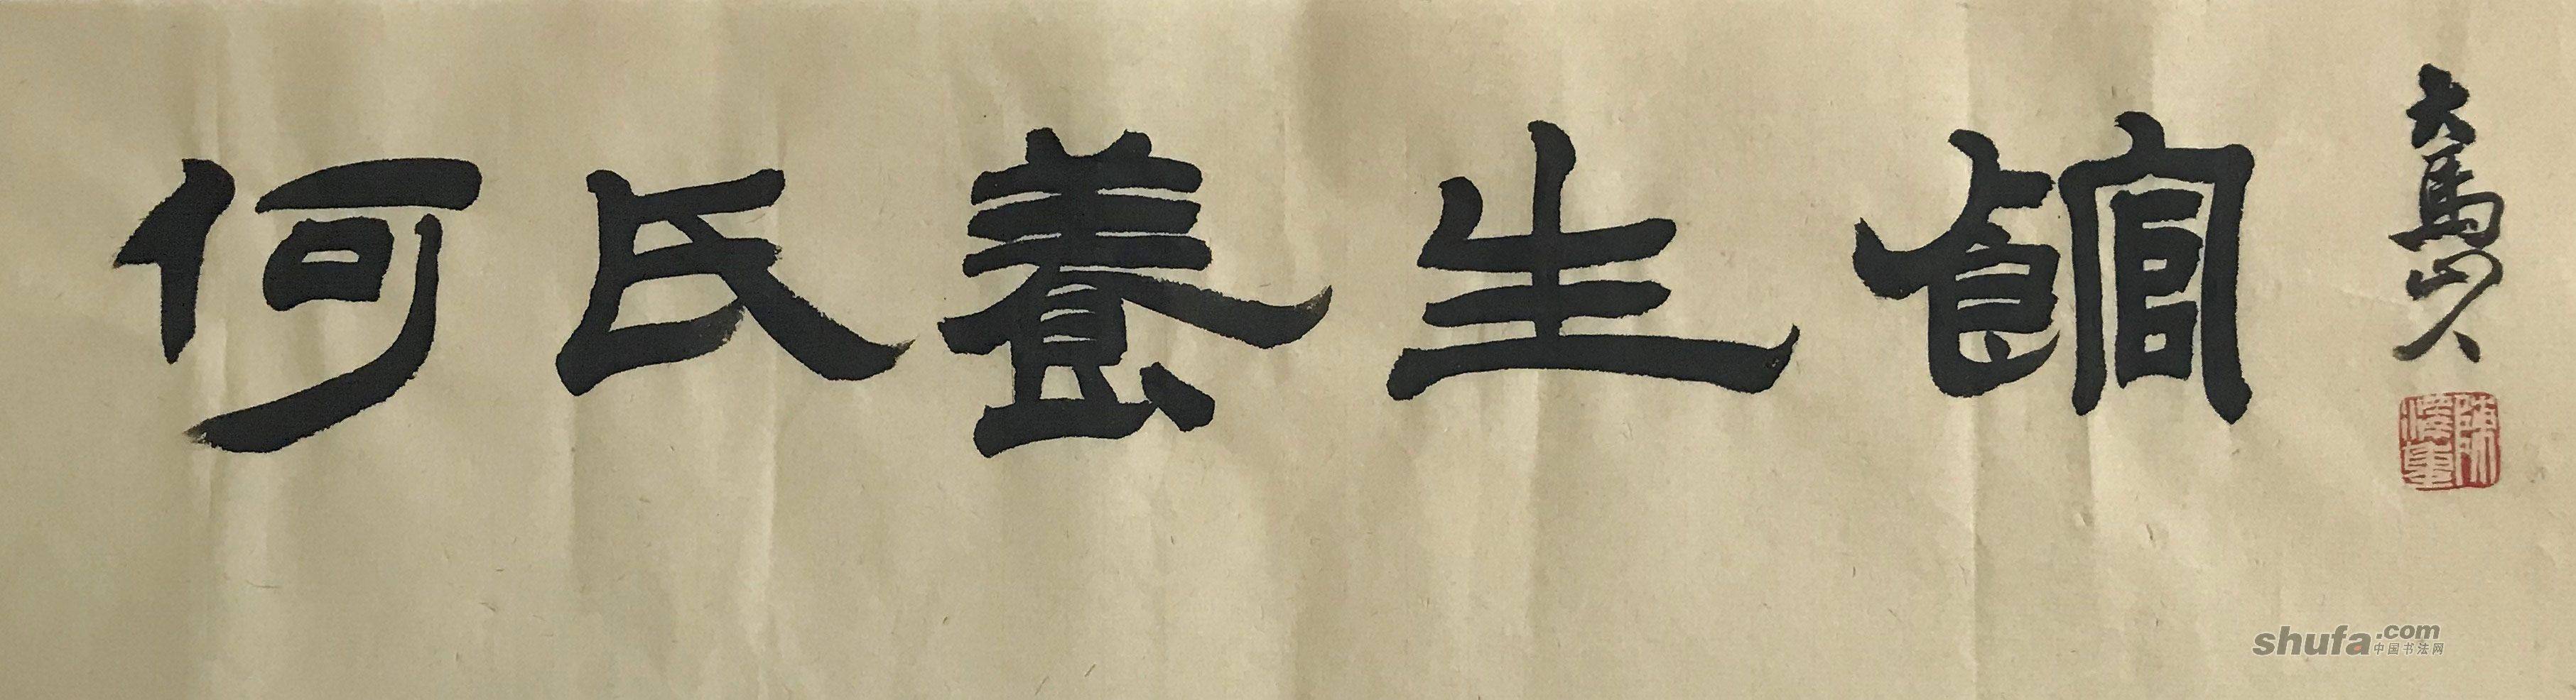 何氏養生館
大馬山人
shufa.com
中国书法网